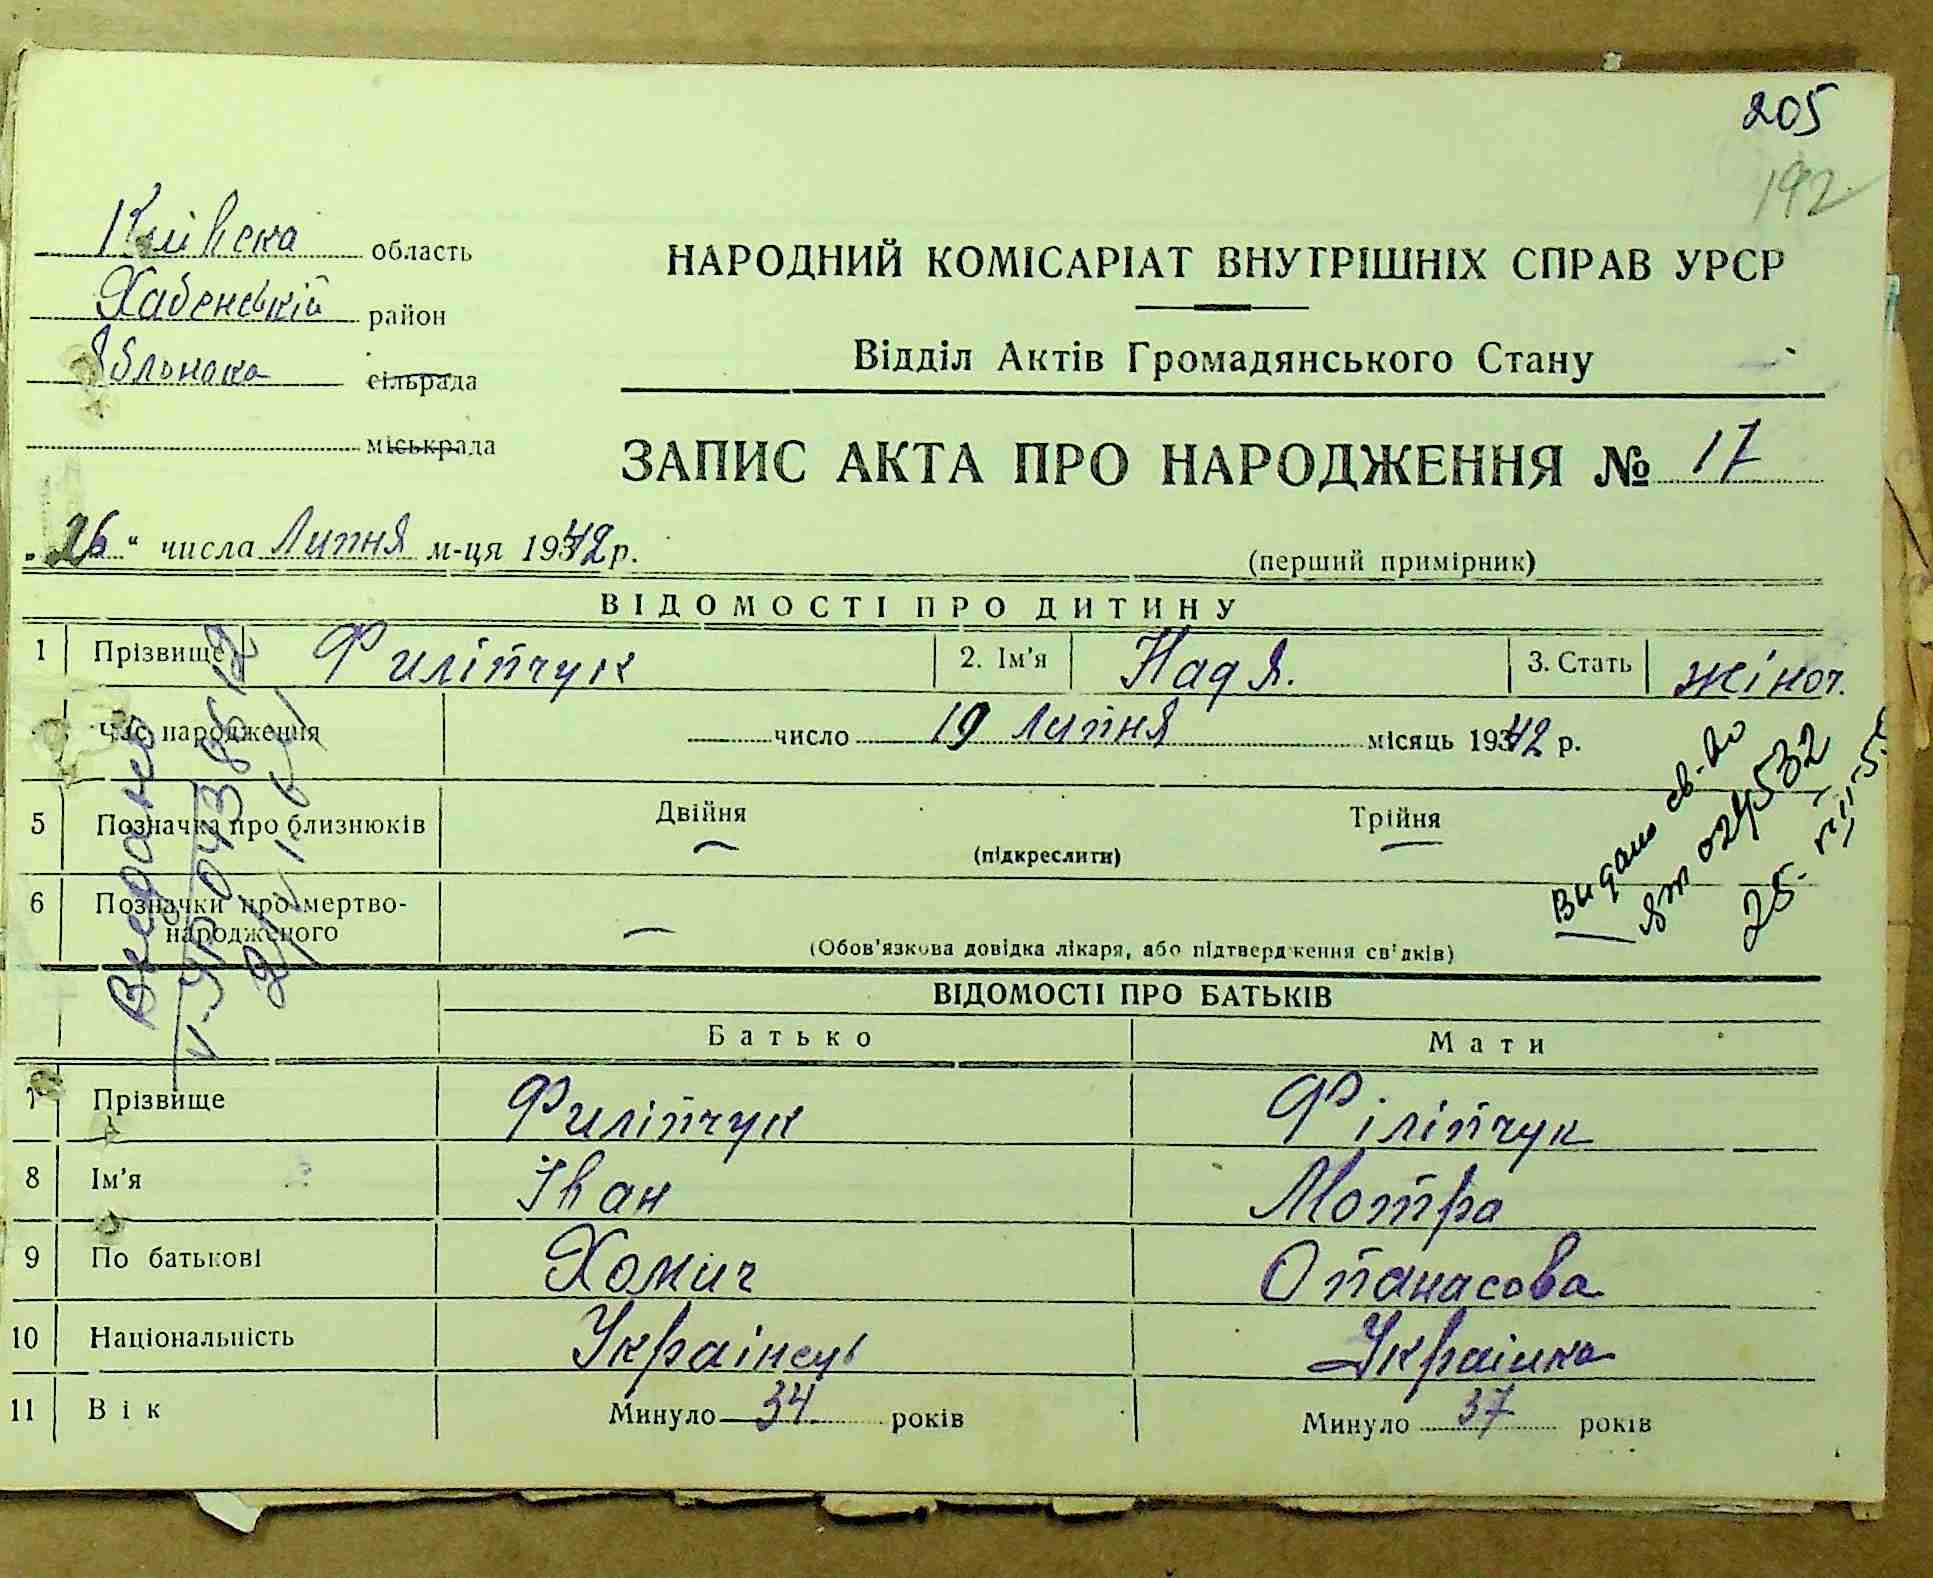 205
192
Київска область
Хабенській район
Яблонска сільрада
міськрада
НАРОДНИЙ КОМІСАРІАТ ВНУТРІШНІХ СПРАВ УРСР
Відділ Актів Громадянського Стану
ЗАПИС АКТА ПРО НАРОДЖЕННЯ № 17
„26" числа Липня м-ця 1942 р.
(перший примірник)
ВІДОМОСТІ ПРО ДИТИНУ
1 Прізвище Филіпчук 2. Ім'я Надя. 3. Стать жіноч.
Час народження число 19 липня місяць 1942 р.
5 Позначка про близнюків Двійня Трійня
(підкреслити)
6 Позначки про мертво-
народженого
(Обов'язкова довідка лікаря, або підтвердження свідків)
Видано св-во
024532
25.
ВІДОМОСТІ ПРО БАТЬКІВ
Батько Мати
7 Прізвище Филіпчук Філіпчук
8 Ім'я Іван Мотра
9 По батькові Хомич Опанасова
10 Національність Українець Українка
11 Вік Минуло 34 років Минуло 37 років